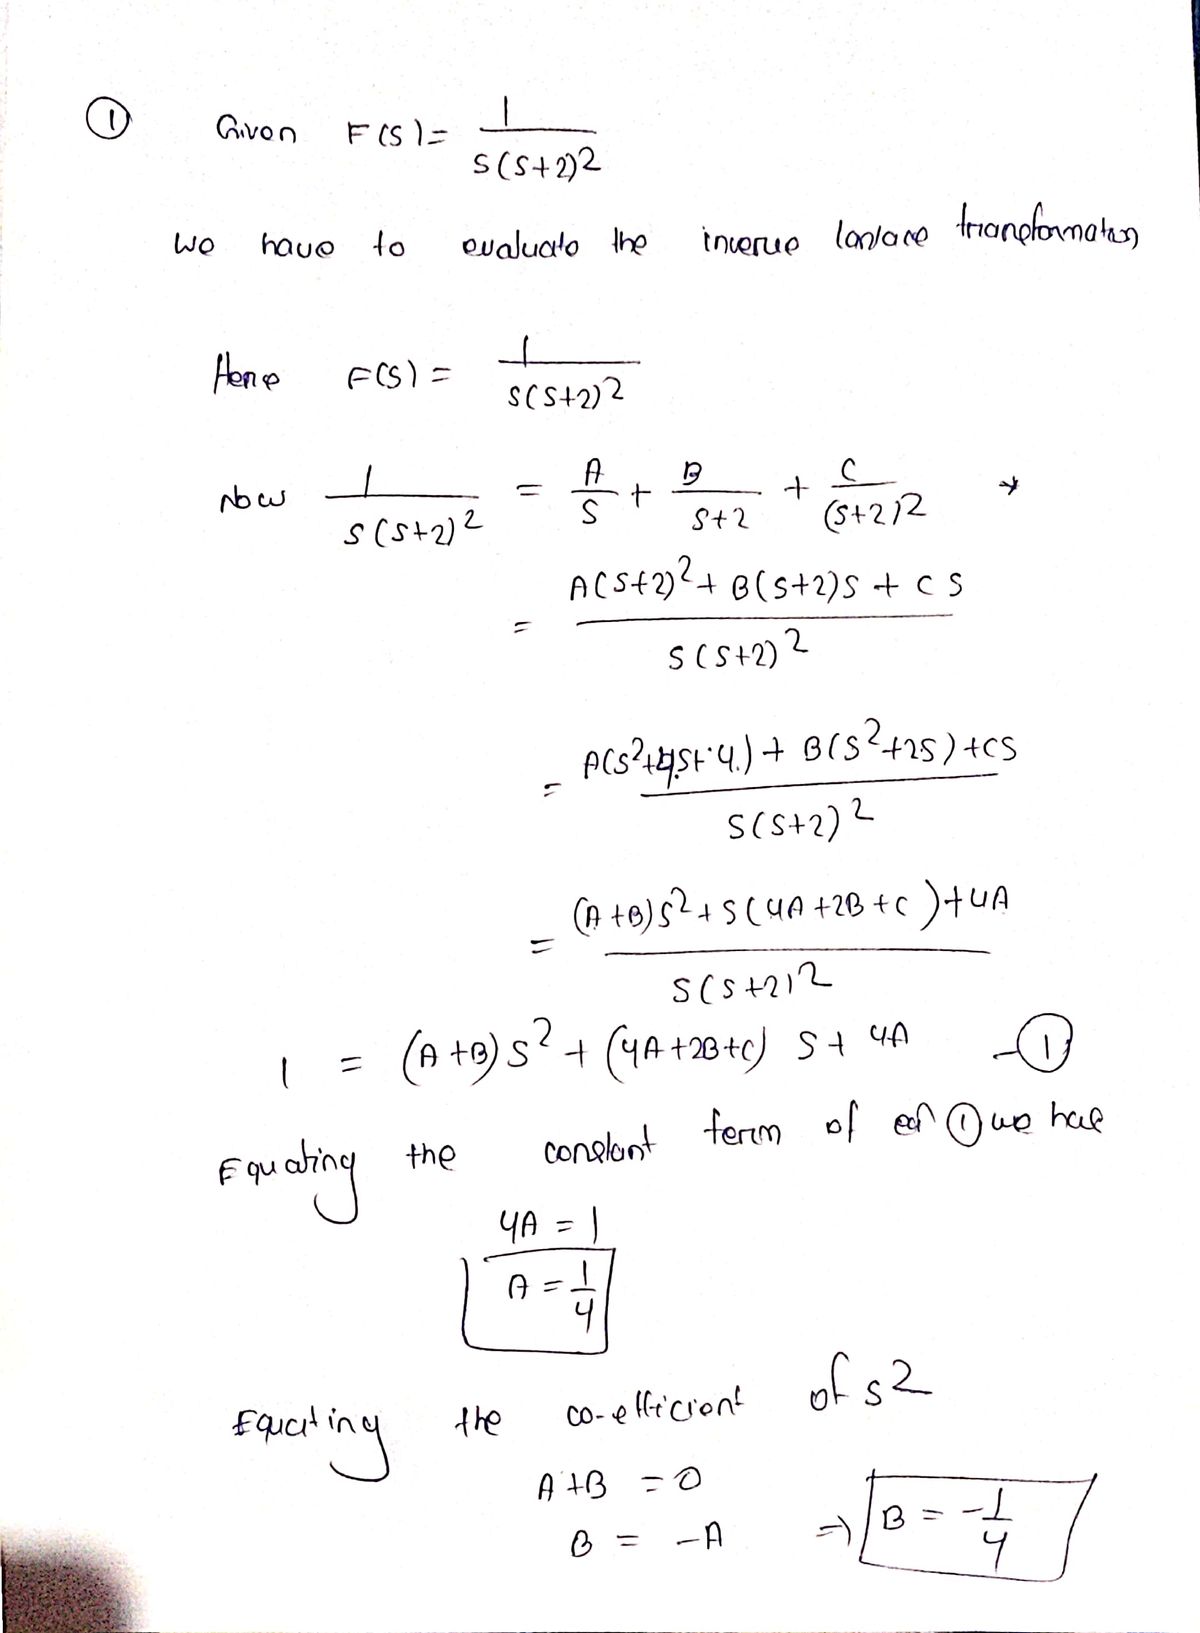 ① Given F(S) = 1 / S(S+2)2
We have to evaluate the inverse laplace transformation
Here F(S) = 1 / S(S+2)2
Now 1 / S(S+2)2 = A/S + B/S+2 + C/(S+2)2
= A(S+2)2 + B(S+2)S + CS / S(S+2)2
= A(S2+4S+4) + B(S2+2S) + CS / S(S+2)2
= (A+B)S2 + S(4A+2B+C) + 4A / S(S+2)2
1 = (A+B)S2 + (4A+2B+C) S + 4A - ①
Equating the constant term of eqn ① we have
4A = 1
A = 1/4
Equating the co-efficient of s2
A+B = 0
B = -A ⇒ B = -1/4